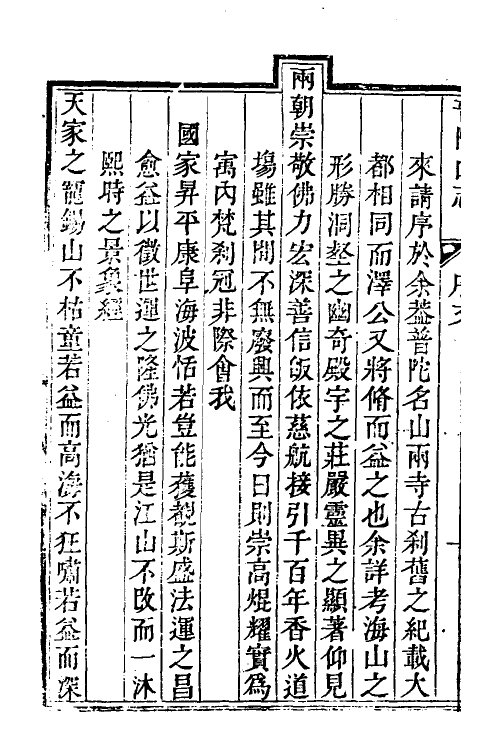 來請序於余葢普陀名山兩寺古刹舊之紀載大
都相同而澤公又將脩而益之也余詳考海山之
形勝洞壑之幽奇殿宇之莊嚴靈異之顯著仰見
兩朝崇敬佛力宏深善信皈依慈航接引千百年香火道
塲雖其間不無廢興而至今日則崇高焜耀實爲
寓內梵刹冠非際會我
國家昇平康阜海波恬若豈能獲覩斯盛法運之昌
愈益以徵世運之隆佛光猶是江山不改而一沐
熙時之景象經
天家之寵錫山不枯童若益而高海不狂嘯若益而深